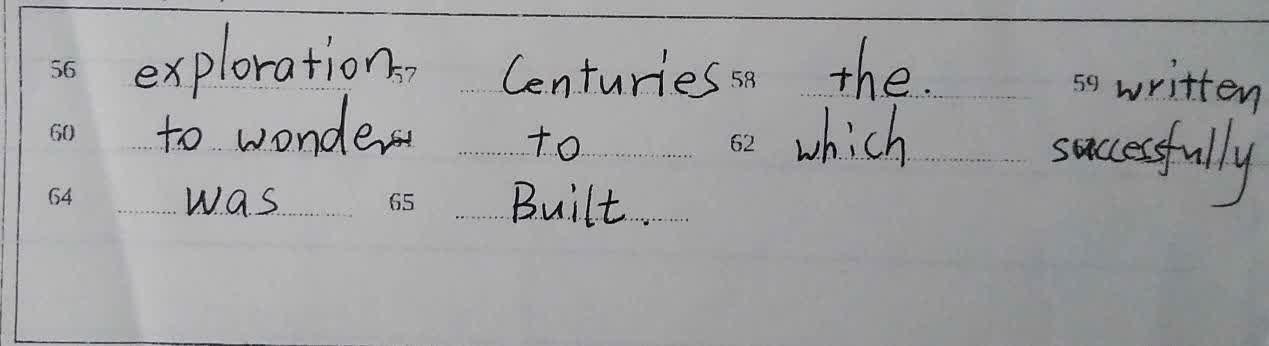 56 exploration 57 Centuries 58 the. 59 written
60 to wonder 61 to 62 which successfully
64 was 65 Built.